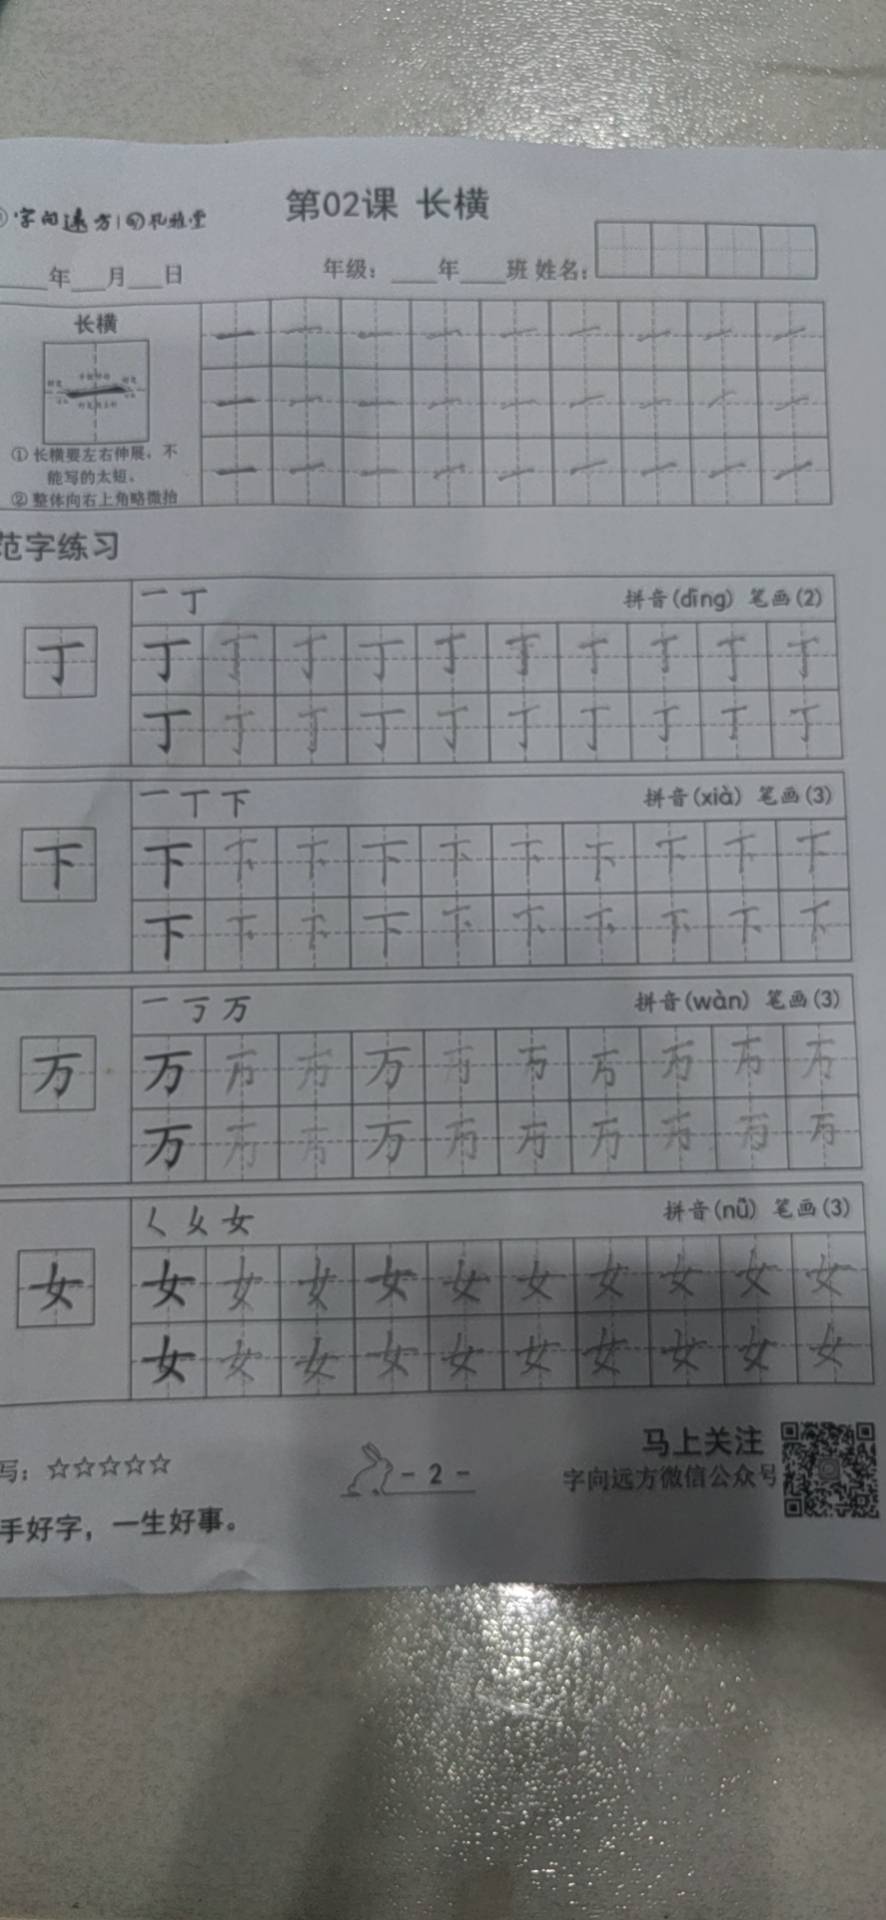 字向远方
第02课 长横
年 月 日 年级: 年 班 姓名:
长横
① 长横要左右伸展,不
能写的太短。
② 整体向右上角略微抬
范字练习
一 丁 拼音(dīng) 笔画(2)
丁 丁 丁 丁 丁 丁 丁 丁 丁 丁 丁
丁 丁 丁 丁 丁 丁 丁 丁 丁 丁
一 丅 下 拼音(xià) 笔画(3)
下 下 下 下 下 下 下 下 下 下 下
下 下 下 下 下 下 下 下 下 下
一 丂 万 拼音(wàn) 笔画(3)
万 万 万 万 万 万 万 万 万 万 万
万 万 万 万 万 万 万 万 万 万
女 拼音(nǚ) 笔画(3)
女 女 女 女 女 女 女 女 女 女 女
女 女 女 女 女 女 女 女 女 女
写:☆☆☆☆☆
- 2 -
马上关注
字向远方微信公众号
手好字,一生好事。